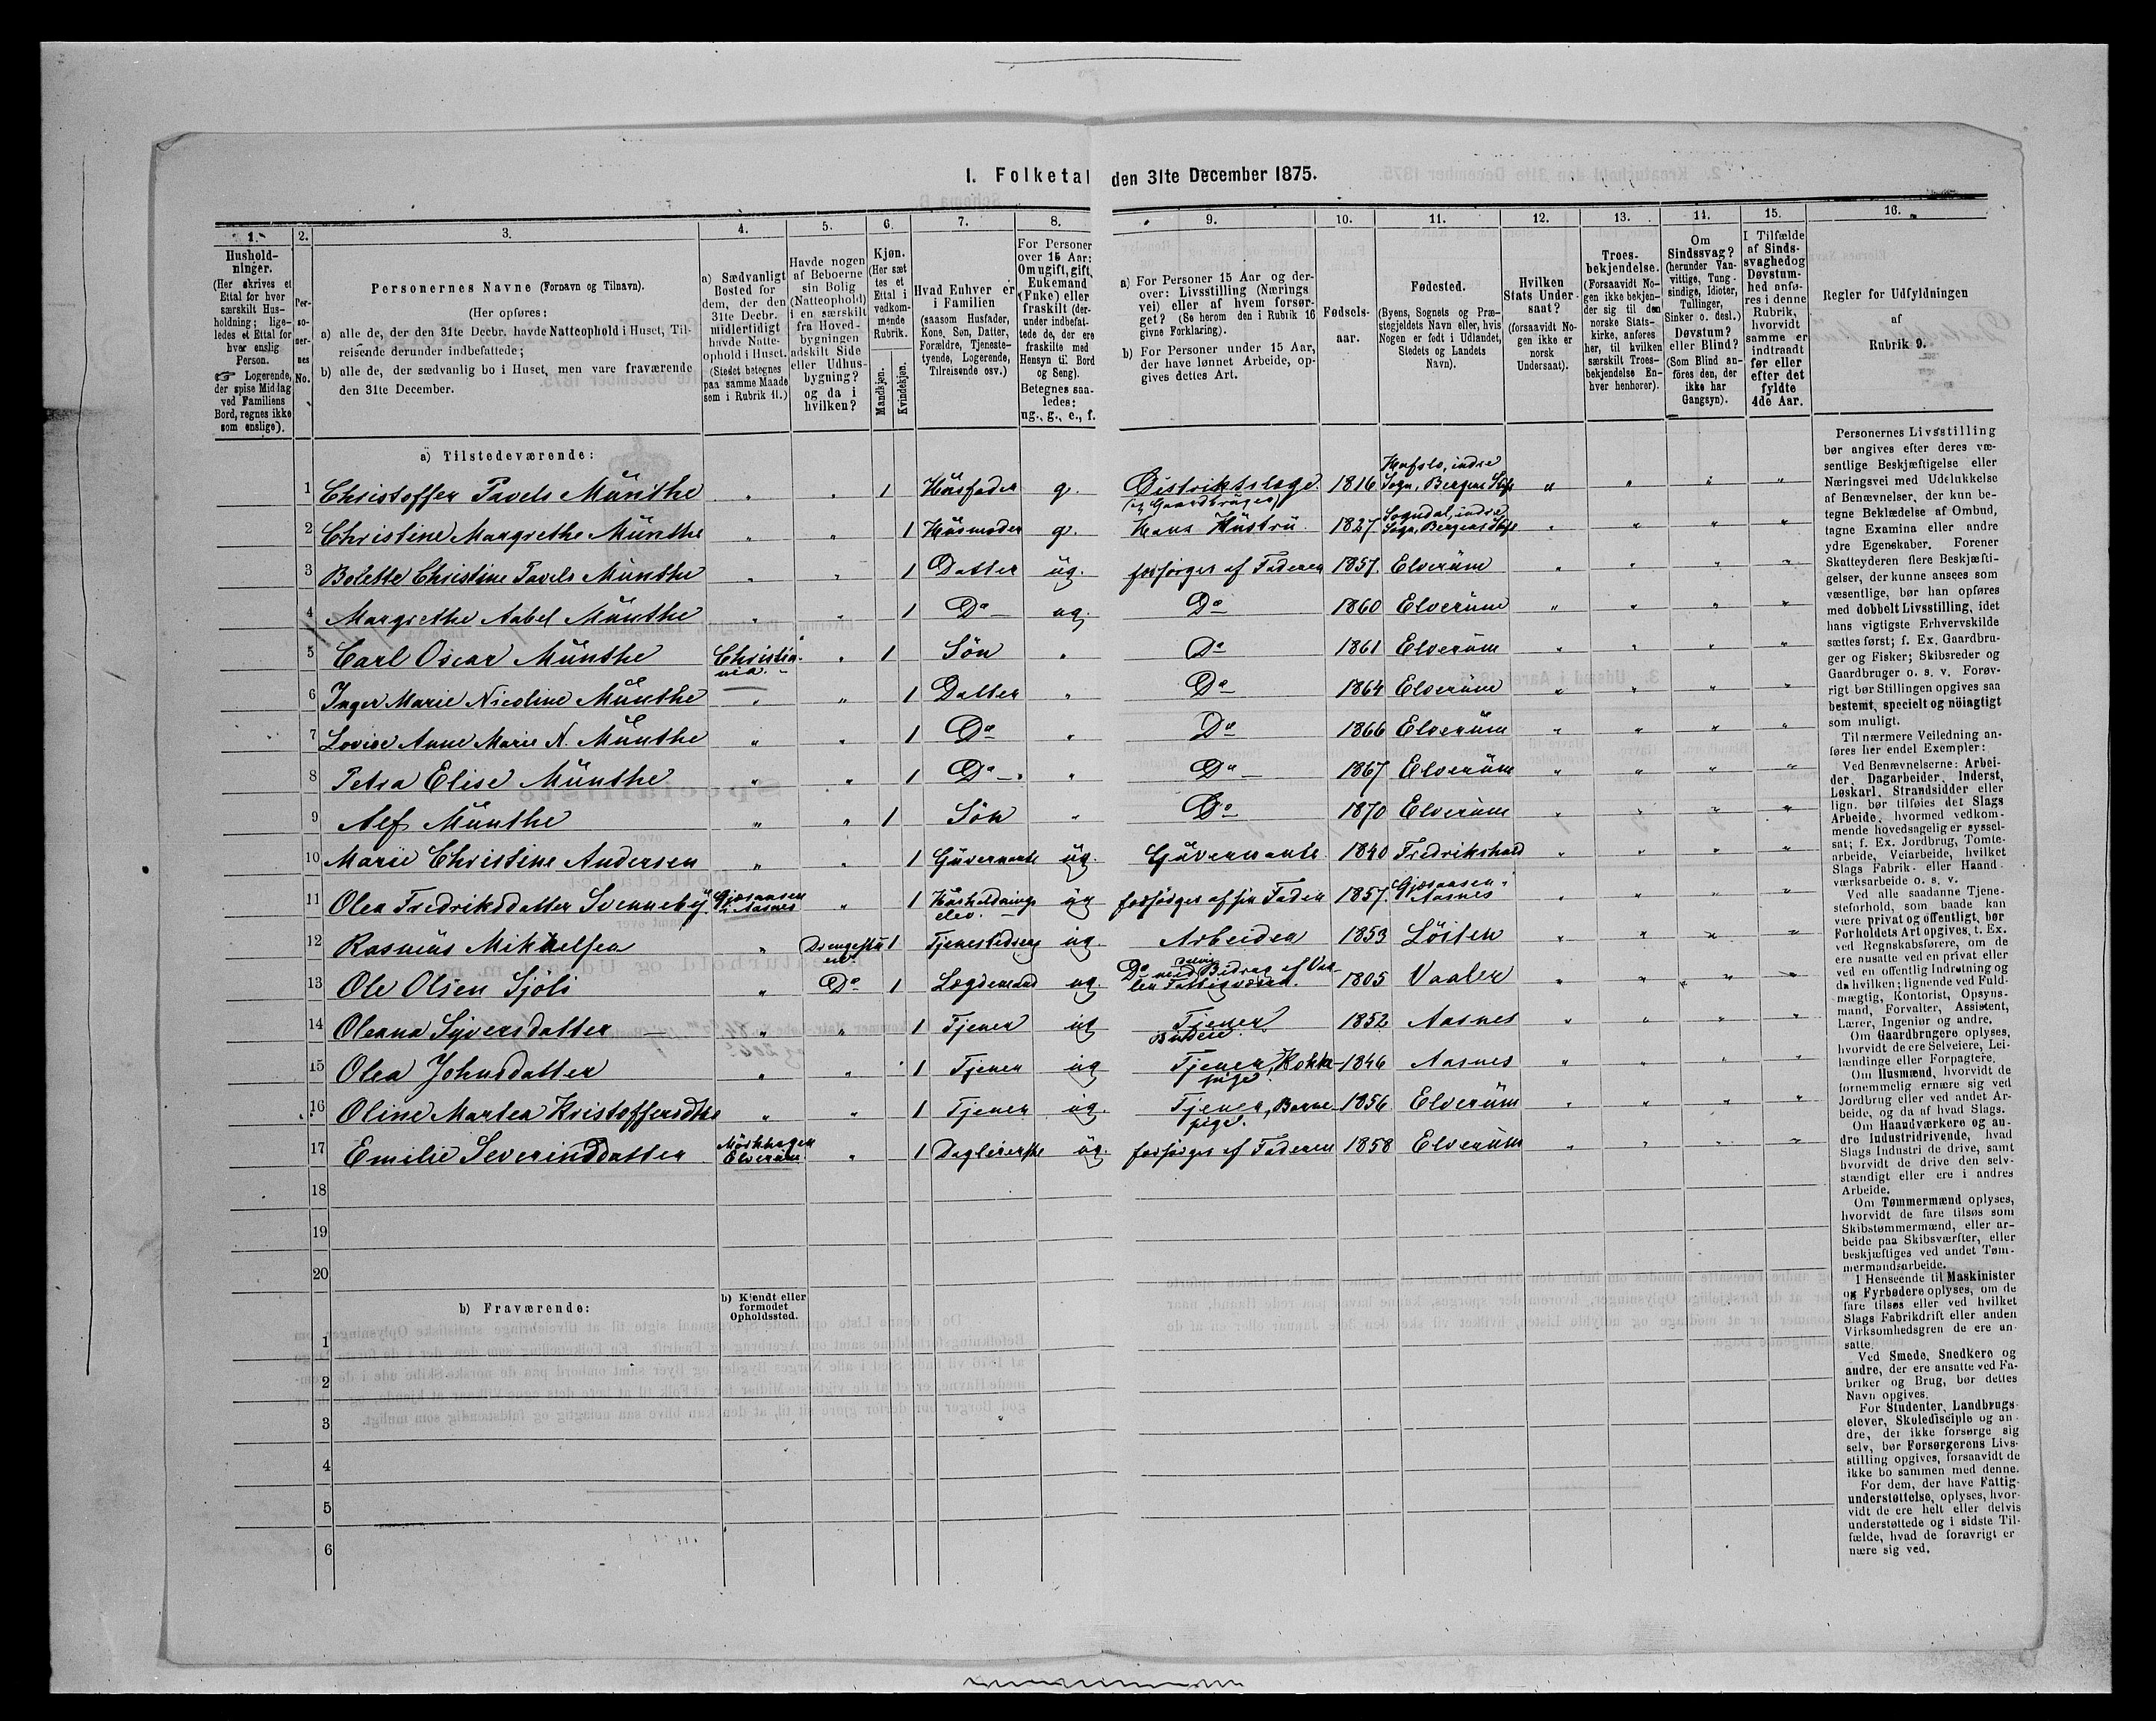 I. Folketal den 31te December 1875.
1. 2. 3. 4. 5. 6. 7. 8. 9. 10. 11. 12. 13. 14. 15. 16.
Hushold-
ninger.
(Her skrives et
Ettal for hver
særskilt Hus-
holdning; lige-
ledes et Ettal for
hver enslig
Person.
☞ Logerende,
der spise Middag
ved Familiens
Bord, regnes ikke
som enslige).
Per-
so-
ner-
nes
No.
Personernes Navne (Fornavn og Tilnavn).
(Her opføres:
a) alle de, der den 31te Decbr. havde Natteophold i Huset, Til-
reisende derunder indbefattede;
b) alle de, der sædvanlig bo i Huset, men vare fraværende
den 31te December.
a) Sædvanligt
Bosted for
dem, der den
31te Decbr.
midlertidigt
havde Natte-
ophold i Huset.
(Stedet betegnes
paa samme Maade
som i Rubrik 11.)
Havde nogen
af Beboerne
sin Bolig
(Natteophold)
i en særskilt
fra Hoved-
bygningen
adskilt Side
eller Udhus-
bygning?
og da i
hvilken?
Kjøn.
(Her sæt
tes et
Ettal i
vedkom-
mende
Rubrik.
Mandkjøn.
Kvindekjøn.
Hvad Enhver er
i Familien
(saasom Husfader,
Kone, Søn, Datter,
Forældre, Tjeneste-
tyende, Logerende,
Tilreisende osv.)
For Personer
over 15 Aar:
Om ugift, gift,
Enkemand
(Enke) eller
fraskilt (der-
under indbefat-
tede de, der ere
fraskilte med
Hensyn til Bord
og Seng).
Betegnes saa-
ledes:
ug., g., e., f.
a) For Personer 15 Aar og der-
over: Livsstilling (Nærings
vei) eller af hvem forsør-
get? (Se herom den i Rubrik 16
givne Forklaring).
b) For Personer under 15 Aar,
der have lønnet Arbeide, op-
gives dettes Art.
Fødsels-
aar.
Fødested.
(Byens, Sognets og Præ-
stegjeldets Navn eller, hvis
Nogen er født i Udlandet,
Stedets og Landets
Navn).
Hvilken
Stats Under-
saat?
(forsaavidt No-
gen ikke er
norsk
Undersaat).
Troes-
bekjendelse.
(Forsaavidt No-
gen ikke bekjen-
der sig til den
norske Stats-
kirke, anføres
her, til hvilken
særskilt Troes-
bekjendelse En-
hver henhører).
Om
Sindssvag?
(herunder Van-
vittige, Tung-
sindige, Idioter,
Tullinger,
Sinker o. desl.)
Døvstum?
eller Blind?
(Som Blind an-
føres den, der
ikke har
Gangsyn).
I Tilfælde
af Sinds-
svaghed og
Døvstum-
hed anfø-
res i denne
Rubrik,
hvorvidt
samme er
indtraadt
før eller
efter det
fyldte
4de Aar.
Regler for Udfyldningen
af
Rubrik 9.
a) Tilstedeværende:
1 Christoffer Pavels Münthe " " 1 Husfader g. Distriktslæge (og Gaardbruger) 1816 Hafslo, indre Sogn, Bergens Stift " " " "
2 Christine Margrethe Münthe " " 1 Husmoder g. Hans Hustru 1827 Sogndal, indre Sogn, Bergens Stift " " " "
3 Bolette Christine Pavels Münthe " " 1 Datter ug. forsørges af Faderen 1857. Elverüm " " " "
4 Margrethe Aabel Münthe " " 1 Do ug. Do 1860 Elverüm " " " "
5 Carl Oscar Münthe Christiania. " 1 Søn " Do 1861 Elverüm " " " "
6 Inger Marie Nicoline Münthe " " 1 Datter " Do 1864 Elverüm " " " "
7 Lovise Anne Marie N. Münthe " " 1 Do " Do 1866 Elverüm " " " "
8 Petra Elise Münthe " " 1 Do " Do 1867 Elverüm " " " "
9 Alf Münthe " " 1 Søn " Do 1870 Elverüm " " " "
10 Marie Christine Andersen " " 1 Guvernante ug. Guvernante 1840 Fredrikshald " " " "
11 Olea Fredriksdatter Svenneby Gjøsaasen i Aasnes " 1 Husholdnings elev. ug forsørges af sin Fader 1857. Gjøsaasen i Aasnes " " " "
12 Rasmus Mikkelsen " Drengestuen 1 Tjenestedreng ug. Arbeider 1853 Löiten " " " "
13 Ole Olsen Sjöli " Do 1 Lægdemand ug. Do med Bidrag af Vaaler Fattigvæsen. 1805 Vaaler " " " "
14 Oleana Syversdatter " " 1 Tjener ug Tjener Budeie. 1852 Aasnes " " " "
15 Olea Johnsdatter " " 1 Tjener ug Tjener, Kokkepige. 1846 Aasnes " " " "
16 Oline Martea Kristoffersdtr " " 1 Tjener ug. Tjener, Barnepige. 1856 Elverüm " " " "
17 Emilie Severinsdatter Elverüm " 1 ug. forsørges af Faderen 1858 Elverüm " " " "
18
19
20
b) Fraværende:
b) Kjendt eller
formodet
Opholdssted.
1
2
3
4
5
6
Personernes Livsstilling
bør angives efter deres væ-
sentlige Beskjæftigelse eller
Næringsvei med Udelukkelse
af Benævnelser, der kun be-
tegne Beklædelse af Ombud,
tagne Examina eller andre
ydre Egenskaber. Forener
Skatteyderen flere Beskjæfti-
gelser, der kunne ansees som
væsentlige, bør han opføres
med dobbelt Livsstilling, idet
hans vigtigste Erhvervskilde
sættes først; f. Ex. Gaardbru-
ger og Fisker; Skibsreder og
Gaardbruger o. s. v. Forøv-
rigt bør Stillingen opgives saa
bestemt, specielt og nöiagtigt
som muligt.
Til nærmere Veiledning an-
føres her endel Exempler:
Ved Benævnelserne: Arbei-
der, Dagarbeider, Inderst,
Løskarl, Strandsidder eller
lign. bør tilføies det Slags
Arbeide, hvormed vedkom-
mende hovedsagelig er syssel-
sat; f. Ex. Jordbrug, Tomte-
arbeide, Veiarbeide, hvilket
Slags Fabrik- eller Haand-
værksarbeide o. s. v.
Ved alle saadanne Tjene-
steforhold, som baade kan
være privat og offentligt, bør
Forholdets Art opgives, t. Ex.
ved Regnskabsførere, om de
ere ansatte ved en privat eller
ved en offentlig Indretning og
da hvilken; lignende ved Fuld-
mægtig, Kontorist, Opsyns-
mand, Forvalter, Assistent,
Lærer, Ingeniør og andre.
Om Gaardbrugere oplyses,
hvorvidt de ere Selveiere, Lei-
lændinge eller Forpagtere.
Om Husmænd, hvorvidt de
fornemmelig ernære sig ved
Jordbrug eller ved andet Ar-
beide, og da af hvad Slags.
Om Haandværkere og an-
dre Industridrivende, hvad
Slags Industri de drive, samt
hvorvidt de drive den selv-
stændigt eller ere i andres
Arbeide.
Om Tømmermænd oplyses,
hvorvidt de fare tilsøs som
Skibstømmermænd, eller ar-
beide paa Skibsværfter, eller
beskjæftiges ved andet Tøm-
mermandsarbeide.
I Henseende til Maskinister
og Fyrbødere oplyses, om de
fare tilsøs eller ved hvilket
Slags Fabrikdrift eller anden
Virksomhedsgren de ere an-
satte.
Ved Smede, Snedkere og
andre, der ere ansatte ved Fa-
briker og Brug, bør dettes
Navn opgives.
For Studenter, Landbrugs-
elever, Skoledisciple og an-
dre, der ikke forsørge sig
selv, bør Forsørgerens Livs-
stilling opgives, forsaavidt de
ikke bo sammen med denne.
For dem, der have Fattig-
understøttelse, oplyses, hvor-
vidt de ere helt eller delvis
understøttede og i sidste Til-
fælde, hvad de forøvrigt er
nære sig ved.